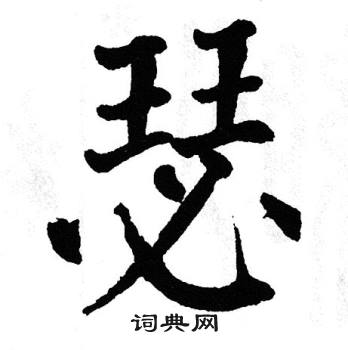 瑟
词典网